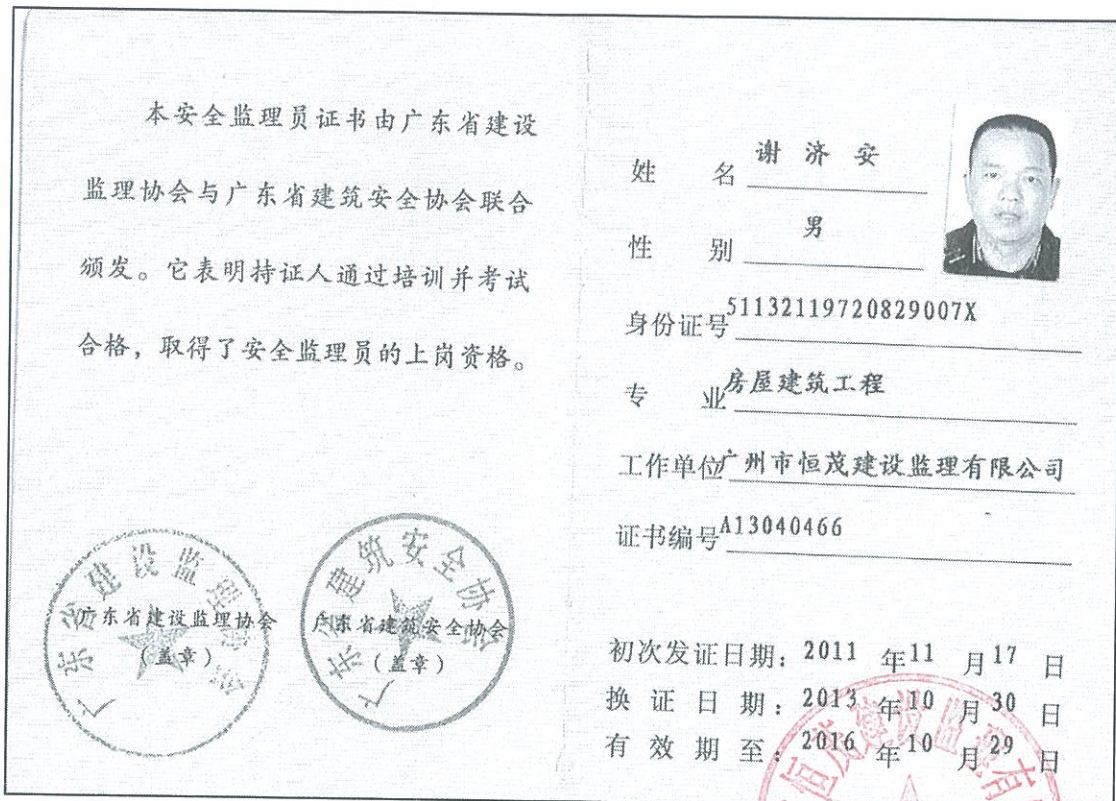 本安全监理员证书由广东省建设
监理协会与广东省建筑安全协会联合
颁发。它表明持证人通过培训并考试
合格，取得了安全监理员的上岗资格。
广东省建设监理协会
广东省建设监理协会
（盖章）
广东省建筑安全协会
广东省建筑安全协会
（盖章）
姓 名 谢济安
性 别 男
身份证号 51132119720829007X
专 业 房屋建筑工程
工作单位 广州市恒茂建设监理有限公司
证书编号 A13040466
初次发证日期：2011 年 11 月 17 日
换证日期：2013 年 10 月 30 日
有效期至：2016 年 10 月 29 日
恒茂建设监理有